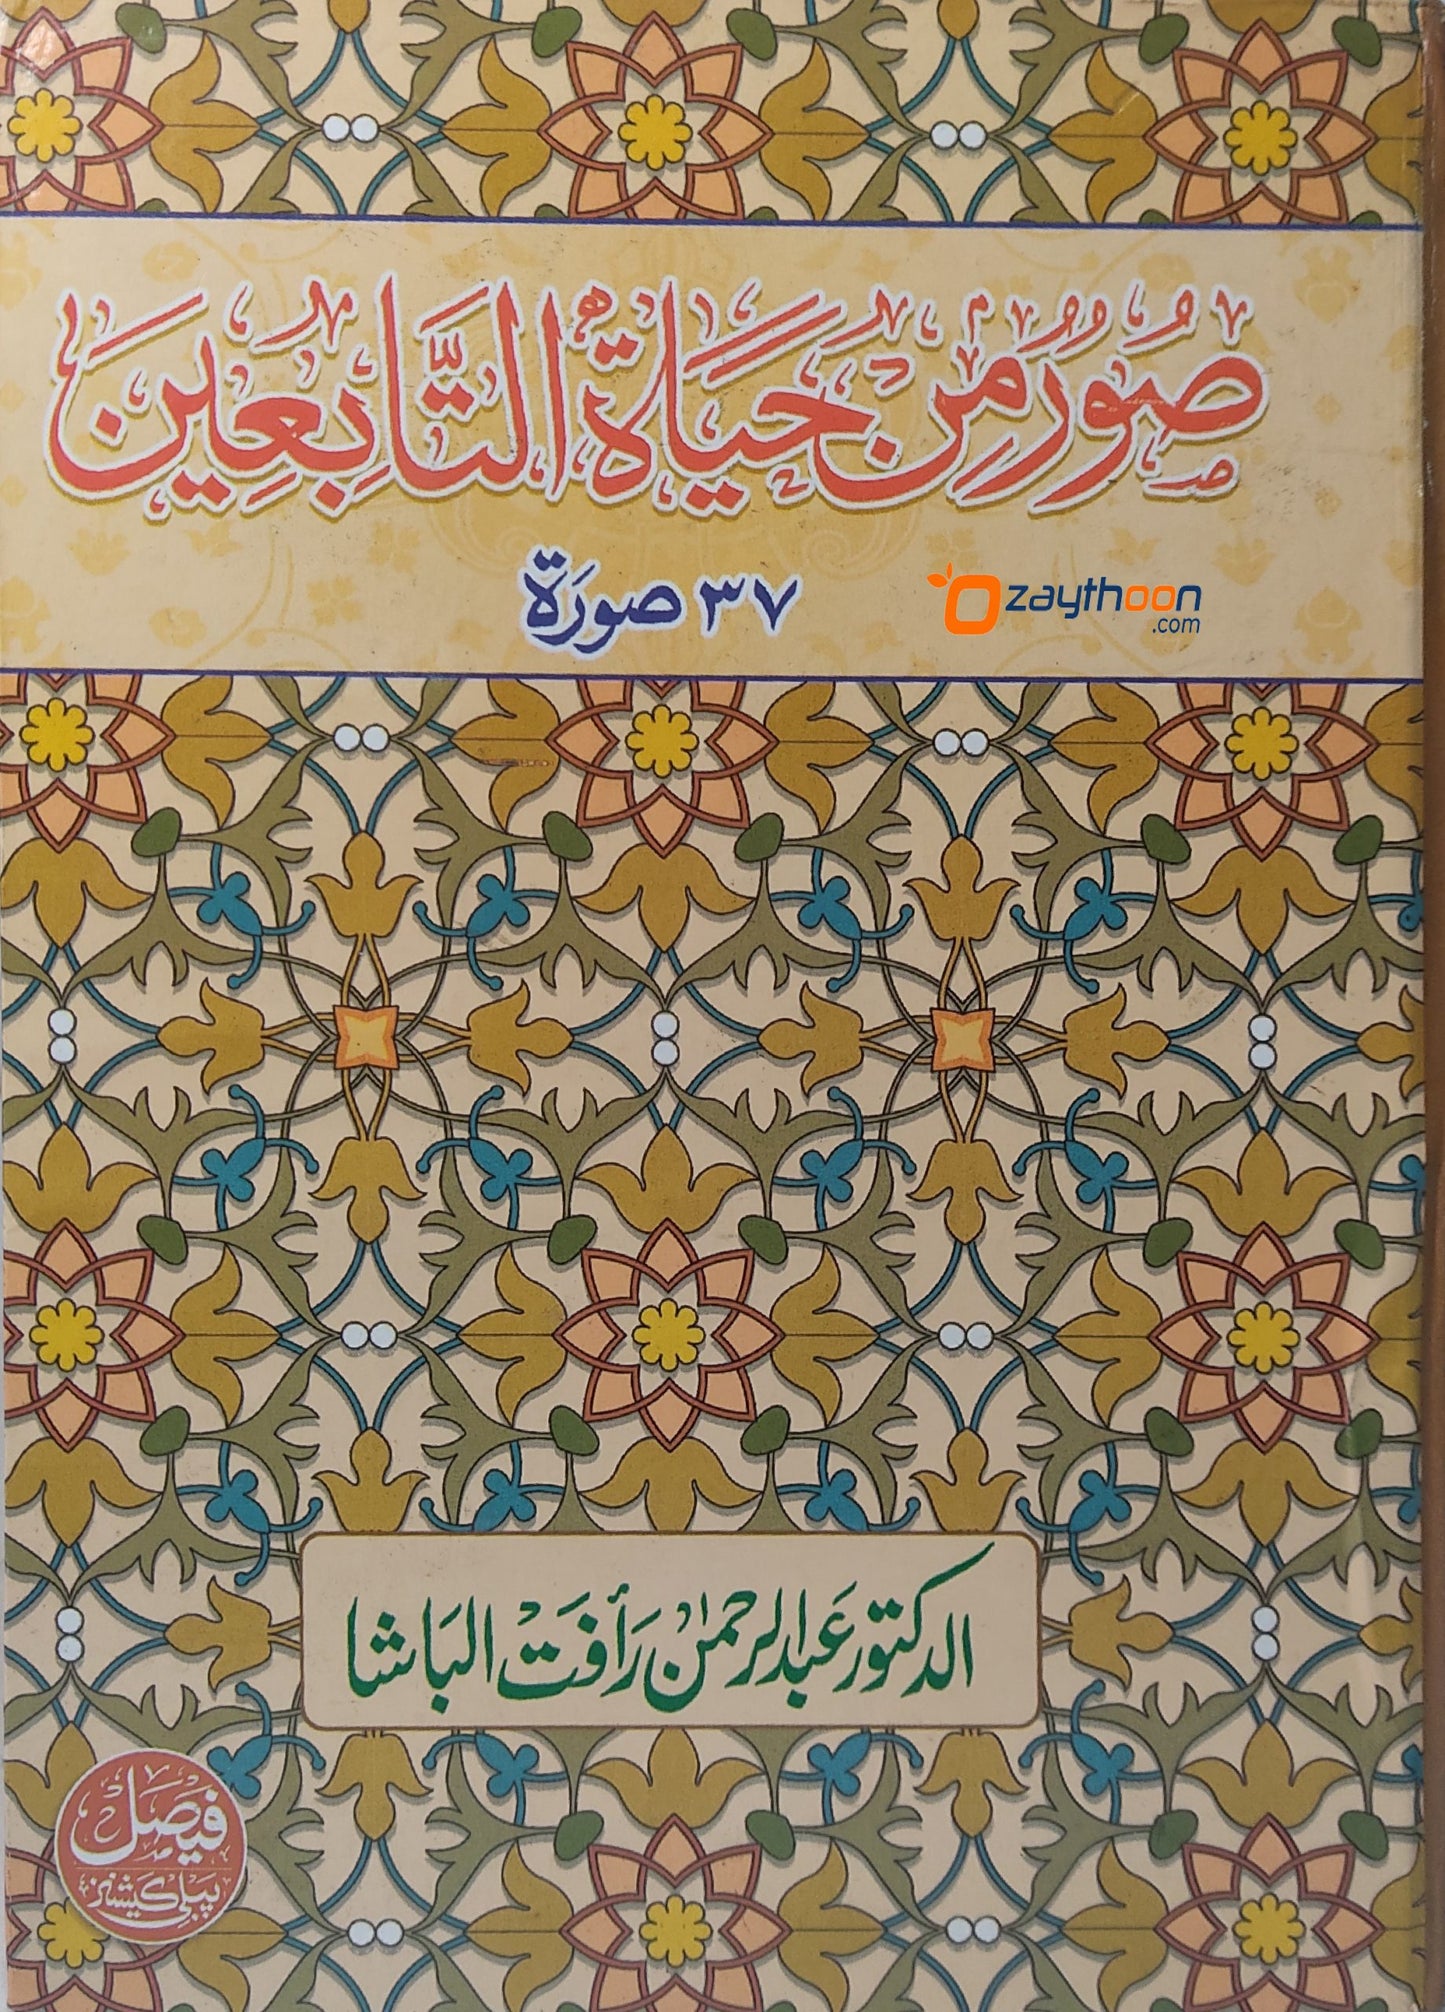 صُوَرٌ مِنْ حَيَاةِ التَّابِعِينَ
٣٧ صورَة
zaythoon
.com
الدكتور عَبد الرحمٰن رَأفَت البَاشا
فيصَل
پبلیکیشنز